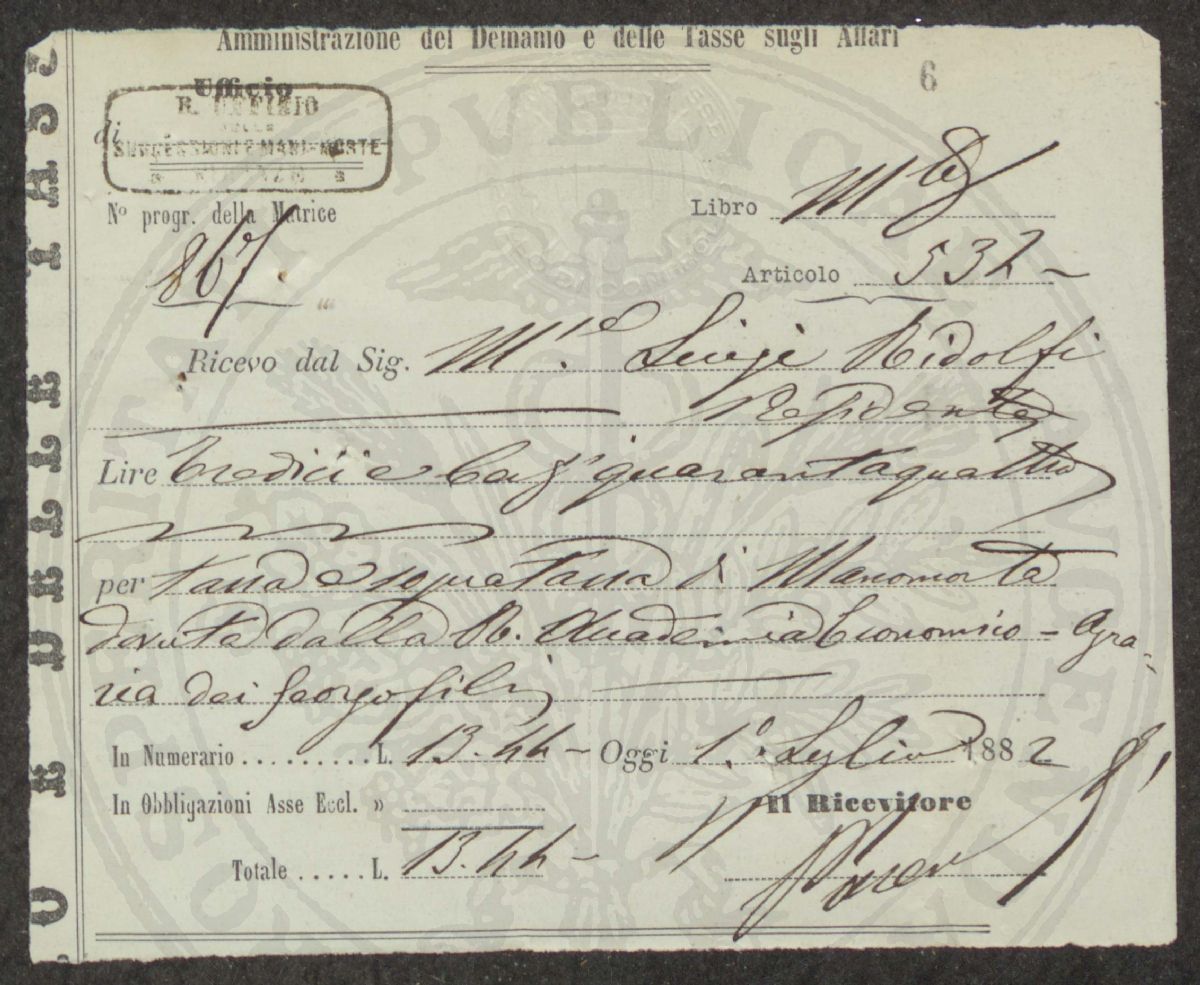 Amministrazione del Demanio e delle Tasse sugli Affari
6
Ufficio
R. UFFIZIO
DELLE
di SUCCESSIONI E MANI-MORTE
N.º progr. della Matrice
867
Libro M
Articolo 532
Ricevo dal Sig. M.e Luigi Ridolfi
Presidente
Lire tredici e quarantaquattro
per tassa e sopratassa di Manomorta
dovuta dalla R. Accademia Economico-Agra-
ria dei Georgofili
In Numerario . . . . . . . . . L. 13.44 – Oggi 1.º Luglio 1882
In Obbligazioni Asse Eccl. »
Il Ricevitore
Totale . . . . . L. 13.44 –